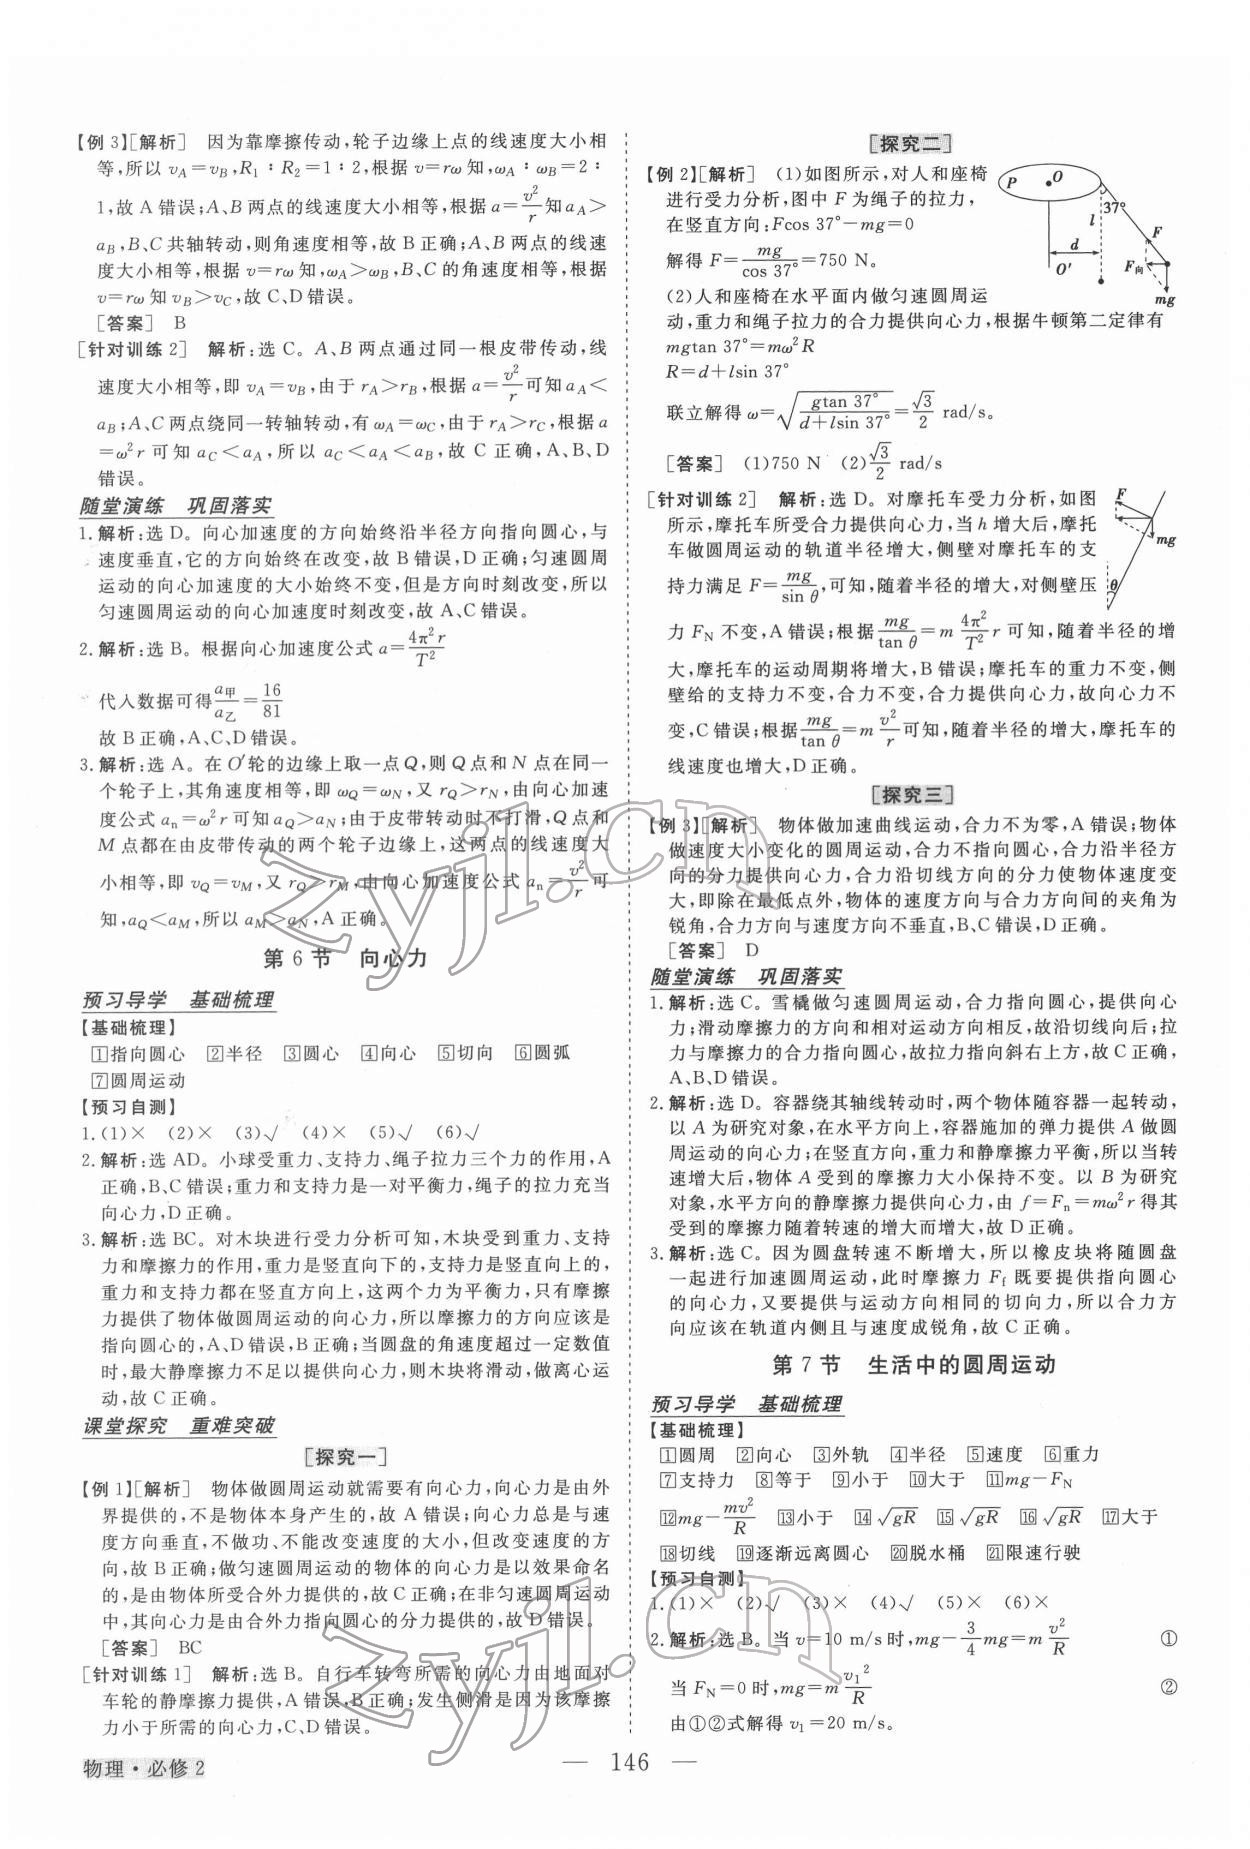 【例 3】[解析]　因为靠摩擦传动,轮子边缘上点的线速度大小相
等,所以 vA＝vB,R1∶R2＝1∶2,根据 v＝rω 知,ωA∶ωB＝2∶
1,故 A 错误;A、B 两点的线速度大小相等,根据 a＝v²/r 知 aA＞
aB,B、C 共轴转动,则角速度相等,故 B 正确;A、B 两点的线速
度大小相等,根据 v＝rω 知,ωA＞ωB,B、C 的角速度相等,根据
v＝rω 知 vB＞vC,故 C、D 错误。
[答案]　B
[针对训练 2]　解析:选 C。A、B 两点通过同一根皮带传动,线
速度大小相等,即 vA＝vB,由于 rA＞rB,根据 a＝v²/r 可知 aA＜
aB;A、C 两点绕同一转轴转动,有 ωA＝ωC,由于 rA＞rC,根据 a
＝ω²r 可知 aC＜aA,所以 aC＜aA＜aB,故 C 正确,A、B、D
错误。
随堂演练　巩固落实
1. 解析:选 D。向心加速度的方向始终沿半径方向指向圆心,与
速度垂直,它的方向始终在改变,故 B 错误,D 正确;匀速圆周
运动的向心加速度的大小始终不变,但是方向时刻改变,所以
匀速圆周运动的向心加速度时刻改变,故 A、C 错误。
2. 解析:选 B。根据向心加速度公式 a＝4π²r/T²
代入数据可得 a甲/a乙＝16/81
故 B 正确,A、C、D 错误。
3. 解析:选 A。在 O′轮的边缘上取一点 Q,则 Q 点和 N 点在同一
个轮子上,其角速度相等,即 ωQ＝ωN,又 rQ＞rN,由向心加速
度公式 an＝ω²r 可知 aQ＞aN;由于皮带转动时不打滑,Q 点和
M 点都在由皮带传动的两个轮子边缘上,这两点的线速度大
小相等,即 vQ＝vM,又 rQ＞rM,由向心加速度公式 an＝v²/r 可
知,aQ＜aM,所以 aM＞aN,A 正确。
第 6 节　向心力
预习导学　基础梳理
【基础梳理】
1指向圆心　2半径　3圆心　4向心　5切向　6圆弧
7圆周运动
【预习自测】
1. (1)×　(2)×　(3)√　(4)×　(5)√　(6)√
2. 解析:选 AD。小球受重力、支持力、绳子拉力三个力的作用,A
正确,B、C 错误;重力和支持力是一对平衡力,绳子的拉力充当
向心力,D 正确。
3. 解析:选 BC。对木块进行受力分析可知,木块受到重力、支持
力和摩擦力的作用,重力是竖直向下的,支持力是竖直向上的,
重力和支持力都在竖直方向上,这两个力为平衡力,只有摩擦
力提供了物体做圆周运动的向心力,所以摩擦力的方向应该是
指向圆心的,A、D 错误,B 正确;当圆盘的角速度超过一定数值
时,最大静摩擦力不足以提供向心力,则木块将滑动,做离心运
动,故 C 正确。
课堂探究　重难突破
[探究一]
【例 1】[解析]　物体做圆周运动就需要有向心力,向心力是由外
界提供的,不是物体本身产生的,故 A 错误;向心力总是与速
度方向垂直,不做功、不能改变速度的大小,但改变速度的方
向,故 B 正确;做匀速圆周运动的物体的向心力是以效果命名
的,是由物体所受合外力提供的,故 C 正确;在非匀速圆周运动
中,其向心力是由合外力指向圆心的分力提供的,故 D 错误。
[答案]　BC
[针对训练 1]　解析:选 B。自行车转弯所需的向心力由地面对
车轮的静摩擦力提供,A 错误,B 正确;发生侧滑是因为该摩擦
力小于所需的向心力,C、D 错误。
[探究二]
【例 2】[解析]　(1)如图所示,对人和座椅
进行受力分析,图中 F 为绳子的拉力,
在竖直方向:Fcos 37°－mg＝0
解得 F＝mg/cos 37°＝750 N。
(2)人和座椅在水平面内做匀速圆周运
动,重力和绳子拉力的合力提供向心力,根据牛顿第二定律有
mgtan 37°＝mω²R
R＝d＋lsin 37°
联立解得 ω＝√(gtan 37°/(d＋lsin 37°))＝√3/2 rad/s。
[答案]　(1)750 N　(2)√3/2 rad/s
P O 37° l F d F向 O′ mg
[针对训练 2]　解析:选 D。对摩托车受力分析,如图
所示,摩托车所受合力提供向心力,当 h 增大后,摩托
车做圆周运动的轨道半径增大,侧壁对摩托车的支
持力满足 F＝mg/sin θ,可知,随着半径的增大,对侧壁压
力 FN 不变,A 错误;根据mg/tan θ＝m 4π²/T² r 可知,随着半径的增
大,摩托车的运动周期将增大,B 错误;摩托车的重力不变,侧
壁给的支持力不变,合力不变,合力提供向心力,故向心力不
变,C 错误;根据mg/tan θ＝m v²/r 可知,随着半径的增大,摩托车的
线速度也增大,D 正确。
F mg θ
[探究三]
【例 3】[解析]　物体做加速曲线运动,合力不为零,A 错误;物体
做速度大小变化的圆周运动,合力不指向圆心,合力沿半径方
向的分力提供向心力,合力沿切线方向的分力使物体速度变
大,即除在最低点外,物体的速度方向与合力方向间的夹角为
锐角,合力方向与速度方向不垂直,B、C 错误,D 正确。
[答案]　D
随堂演练　巩固落实
1. 解析:选 C。雪橇做匀速圆周运动,合力指向圆心,提供向心
力;滑动摩擦力的方向和相对运动方向相反,故沿切线向后;拉
力与摩擦力的合力指向圆心,故拉力指向斜右上方,故 C 正确,
A、B、D 错误。
2. 解析:选 D。容器绕其轴线转动时,两个物体随容器一起转动,
以 A 为研究对象,在水平方向上,容器施加的弹力提供 A 做圆
周运动的向心力;在竖直方向,重力和静摩擦力平衡,所以当转
速增大后,物体 A 受到的摩擦力大小保持不变。以 B 为研究
对象,水平方向的静摩擦力提供向心力,由 f＝Fn＝mω²r 得其
受到的摩擦力随着转速的增大而增大,故 D 正确。
3. 解析:选 C。因为圆盘转速不断增大,所以橡皮块将随圆盘
一起进行加速圆周运动,此时摩擦力 Ff 既要提供指向圆心
的向心力,又要提供与运动方向相同的切向力,所以合力方
向应该在轨道内侧且与速度成锐角,故 C 正确。
第 7 节　生活中的圆周运动
预习导学　基础梳理
【基础梳理】
1圆周　2向心　3外轨　4半径　5速度　6重力
7支持力　8等于　9小于　10大于　11mg－FN
12mg－mv²/R　13小于　14√gR　15√gR　16√gR　17大于
18切线　19逐渐远离圆心　20脱水桶　21限速行驶
【预习自测】
1. (1)×　(2)√　(3)×　(4)√　(5)×　(6)×
2. 解析:选 B。当 v＝10 m/s 时,mg－3/4 mg＝m v²/R　①
当 FN＝0 时,mg＝m v1²/R　②
由①②式解得 v1＝20 m/s。
物理·必修 2
— 146 —
zyjl.cn
zyjl.cn